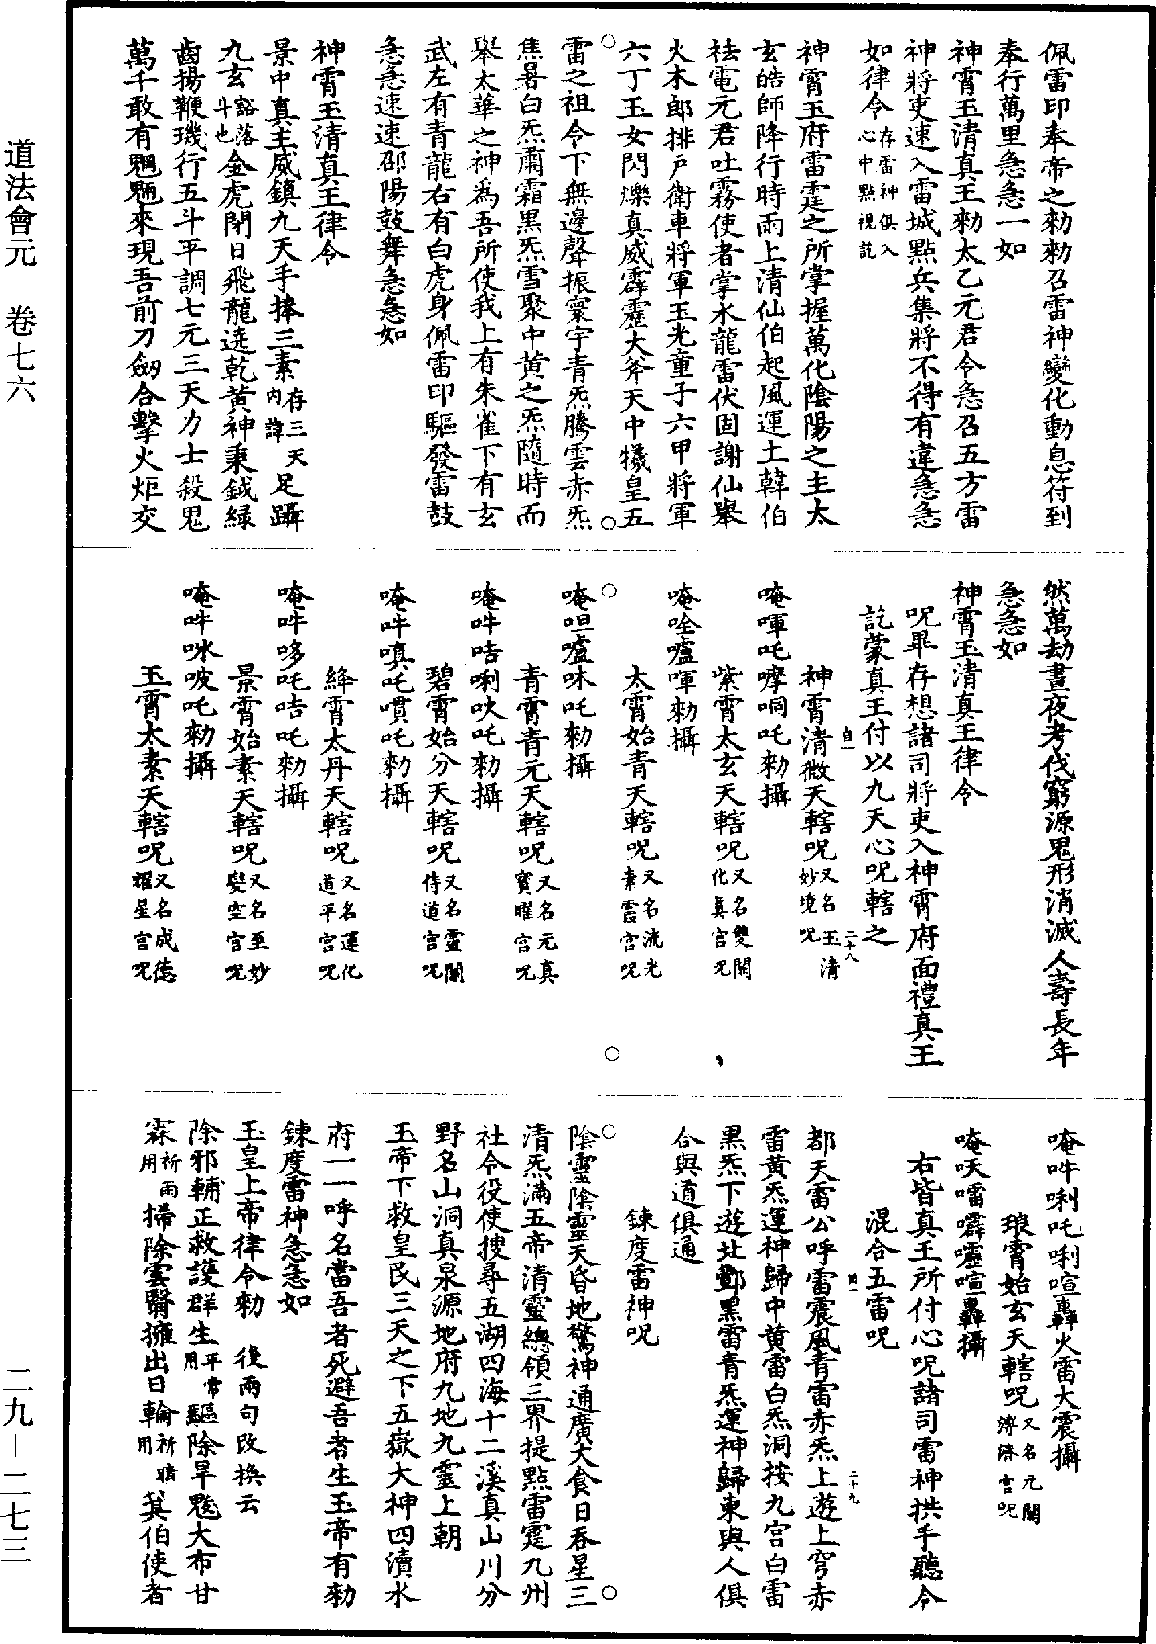 佩雷印奉帝之勑勑召雷神變化動息符到
奉行萬里急急一如
神霄玉清真王勑太乙元君令急召五方雷
神將吏速入雷城點兵集將不得有違急急
如律令存雷神俱入心中點視訖
神霄玉府雷霆之所掌握萬化陰陽之主太
玄皓師降行時雨上清仙伯起風運土韓伯
祛電元君吐霧使者掌水龍雷伏固謝仙舉
火木郎排戶衛車將軍玉光童子六甲將軍
六丁玉女閃爍真威霹靂大斧天中犧皇五
雷之祖令下無邊聲振寰宇青炁騰雲赤炁
焦暑白炁肅霜黑炁雪聚中黄之炁隨時而
舉太華之神為吾所使我上有朱雀下有玄
武左有青龍右有白虎身佩雷印驅發雷鼓
急急速速邵陽鼓舞急急如
神霄玉清真王律令
景中真主威鎮九天手捧三素存三天內諱足躡
九玄豁落斗也金虎閉日飛龍遶乾黄神秉鉞緑
齒揚鞭璣行五斗平調七元三天力士殺鬼
萬千敢有魍魎來現吾前刀劒合擊火炬交
然萬劫晝夜考伐窮源鬼形消滅人壽長年
急急如
神霄玉清真王律令
呪畢存想諸司將吏入神霄府面禮真王
訖蒙真王付以九天心呪轄之
神霄清微天轄呪又名玉清妙境呪
唵㖇吒嘮哃吒勑攝
紫霄太玄天轄呪又名雙關化真宫呪
唵唑嚧㖇勑攝
太霄始青天轄呪又名流光素霞宫呪
唵呾嚧呠吒勑攝
青霄青元天轄呪又名元真寳曜宫呪
唵吽咭唎吙吒勑攝
碧霄始分天轄呪又名靈關侍道宫呪
唵吽嗔吒嘳吒勑攝
絳霄太丹天轄呪又名運化道平宫呪
唵吽哆吒咭吒勑攝
景霄始素天轄呪又名至妙變空宫呪
唵吽咪㕰吒勑攝
玉霄太素天轄呪又名成德耀星宫呪
唵吽唎吒唎喧轟火雷大震攝
琅霄始玄天轄呪又名元關溥濟宫呪
唵吠嚁噼嚦喧轟攝
右皆真王所付心呪諸司雷神拱手聽令
混合五雷呪
都天雷公呼雷震風青雷赤炁上遊上穹赤
雷黄炁運神歸中黄雷白炁洞按九宫白雷
黑炁下遊北酆黑雷青炁運神歸東與人俱
合與道俱通
鍊度雷神呪
陰靈陰靈天昏地驚神通廣大食日吞星三
清炁滿五帝清靈總領三界提點雷霆九州
社令役使搜尋五湖四海十二溪真山川分
野名山洞真泉源地府九地九靈上朝
玉帝下救皇民三天之下五嶽大神四瀆水
府一一呼名當吾者死避吾者生玉帝有勑
鍊度雷神急急如
玉皇上帝律令勑　後兩句改換云
除邪輔正救護群生平常用驅除旱魃大布甘
霖祈雨用掃除雲翳擁出日輪祈晴用箕伯使者
道法會元　卷七六
二九－二七三